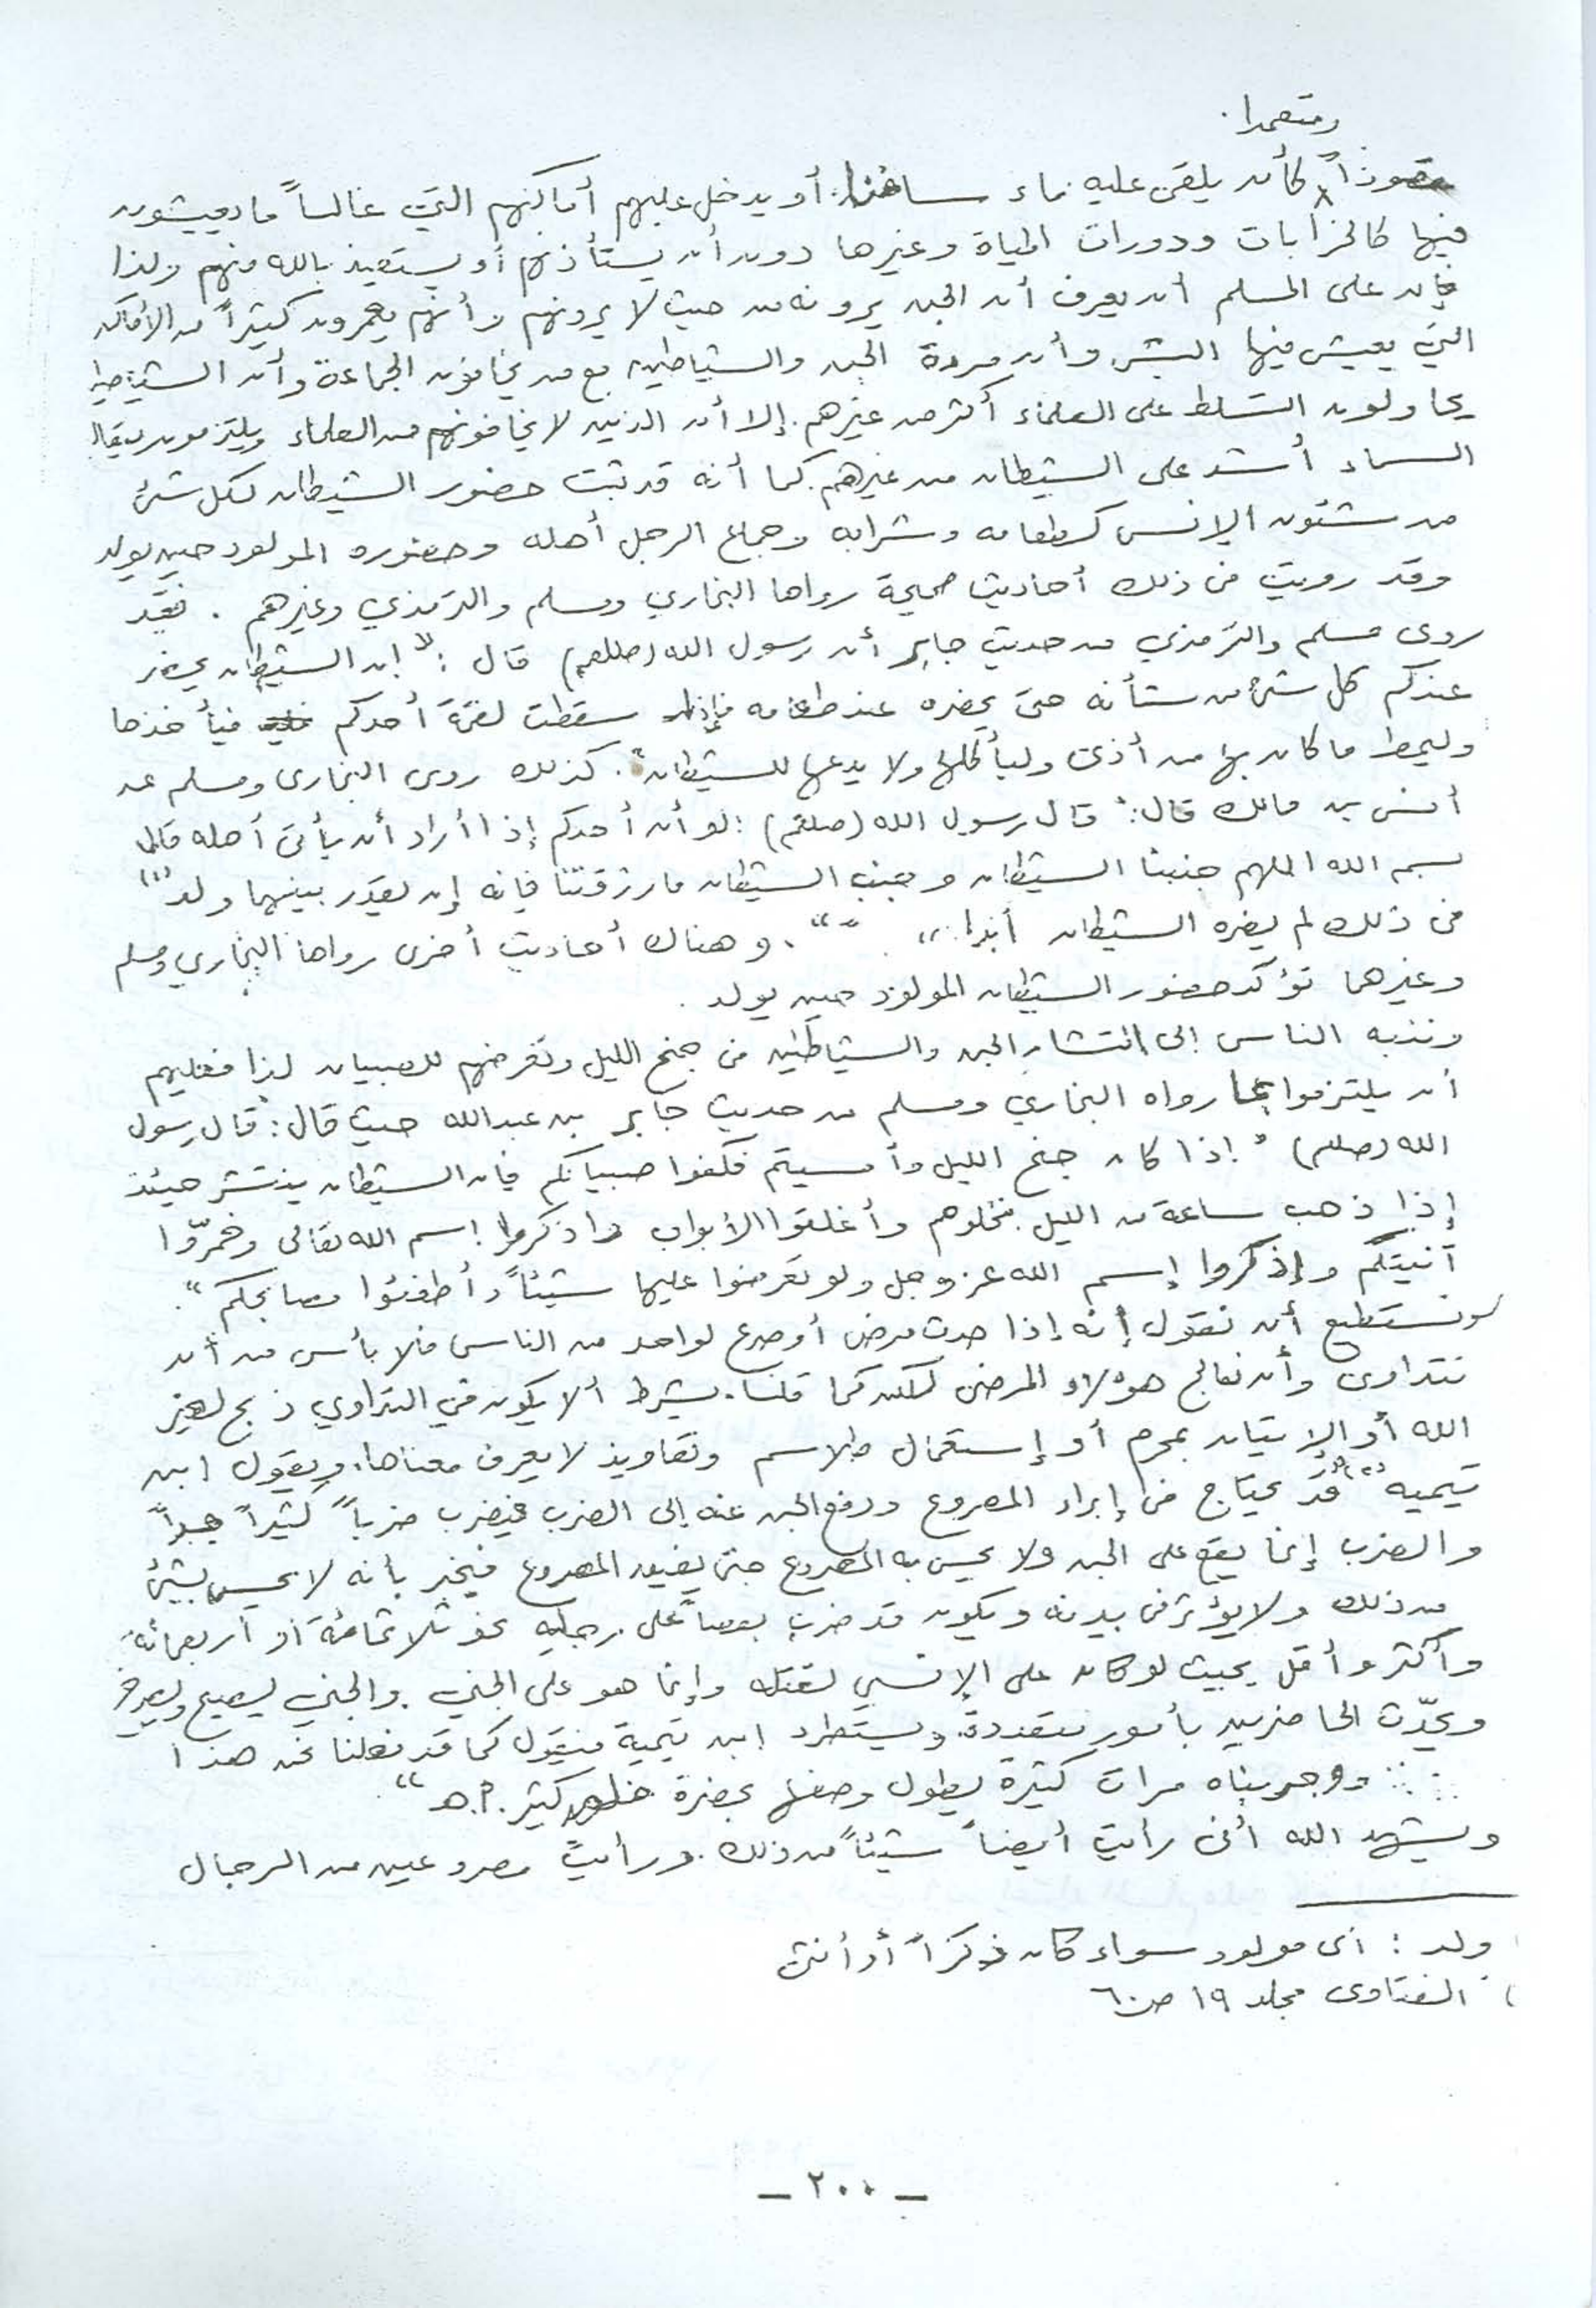 ومتعمدا.
مقصوداً كأن يلقى عليه ماء ساخنا. أو يدخل عليهم أماكنهم التي غالباً ما يعيشون
فيها كالخرابات ودورات المياة وغيرها دون أن يستأذنهم أو يستعيذ بالله منهم ولذا
فإن على المسلم أن يعرف أن الجن يرونه من حيث لا يرونهم وأنهم يعمرون كثيراً من الأماكن
التي يعيش فيها البشر وأن مردة الجن والشياطين مع من يخافون الجماعة وأن الشياطين
يحاولون التسلط على العلماء أكثر من غيرهم. إلا أن الذين لا يخافونهم من العلماء ويلتزمون
السماء أشد على الشيطان من غيرهم. كما أنه قد ثبت حضور الشيطان لكل شئ
من شئون الإنس كطعامه وشرابه وجماع الرجل أهله وحضوره المولود حين يولد
وقد رويت في ذلك أحاديث صحيحة رواها البخاري ومسلم والترمذي وغيرهم. فقد
روى مسلم والترمذي من حديث جابر أن رسول الله (صللعم) قال: "إن الشيطان يحضر
عندكم كل شئ من شأنه حتى يحضره عند طعامه فإذا سقطت لقمة أحدكم فيأخذها
وليمط ما كان بها من أذى وليأكلها ولا يدعها للشيطان". كذلك روى البخارى ومسلم عن
أنس بن مالك قال: "قال رسول الله (صلعم): لو أن أحدكم إذا أراد أن يأتي أهله قال
بسم الله اللهم جنبنا الشيطان وجنب الشيطان ما رزقتنا فإنه إن يقدر بينهما ولد" (١)
في ذلك لم يضره الشيطان أبدا.." ". وهناك أحاديث أخرى رواها البخاري ومسلم
وغيرهما تؤكد حضور الشيطان المولود حين يولد.
وننبه الناس إلى انتشار الجن والشياطين في جنح الليل وتعرضهم للصبيان لذا فعليهم
أن يلتزموا بما رواه البخاري ومسلم من حديث جابر بن عبدالله حيث قال: قال رسول
الله (صللم) "إذا كان جنح الليل وأمسيتم فكفوا صبيانكم فإن الشيطان ينتشر حينئذ
إذا ذهب ساعة من الليل فخلوهم وأغلقوا الأبواب واذكروا إسم الله تعالى وخمرّوا
آنيتكم وإذكروا إسم الله عز وجل ولو تعرضوا عليها شيئاً وأطفئوا مصابحكم".
ونستطيع أن نقول إنه إذا حدث مرض أو صرع لواحد من الناس فلا بأس من أن
نتداوى وأن نعالج هؤلاء المرضى لكن كما قلنا. بشرط ألا يكون في التداوي ذبح لغير
الله أو الإتيان بمحرم أو إستعمال طلاسم وتعاويذ لا يعرف معناها. ويقول ابن
تيميه (٢) "قد يحتاج في إبراء المصروع ودفع الجن عنه إلى الضرب فيضرب ضرباً كثيراً جداً
والضرب إنما يقع على الجن ولا يحس به المصروع حتى يفيق المصروع فيخبر بأنه لا يحس بشئ
من ذلك ولا يؤثر في بدنه ويكون قد ضرب بعصاً على رجليه نحو ثلاثمائة أو أربعمائة
وأكثر وأقل بحيث لو كان على الإنسي لقتله وإنما هو على الجني. والجني يصيح ويصرخ
ويحدّث الحاضرين بأمور متعددة. ويستطرد ابن تيمية فيقول كما قد فعلنا نحن هذا
وجربناه مرات كثيرة يطول وصفها بحضرة خلق كثير. ا.هـ"
ويشهد الله أني رأيت أيضاً شيئاً من ذلك. ورأيت مصروعين من الرجال
ولد: أى مولود سواء كان ذكراً أو أنثى
الفتاوى مجلد ١٩ ص ٦٠
– ٢٠٠ –